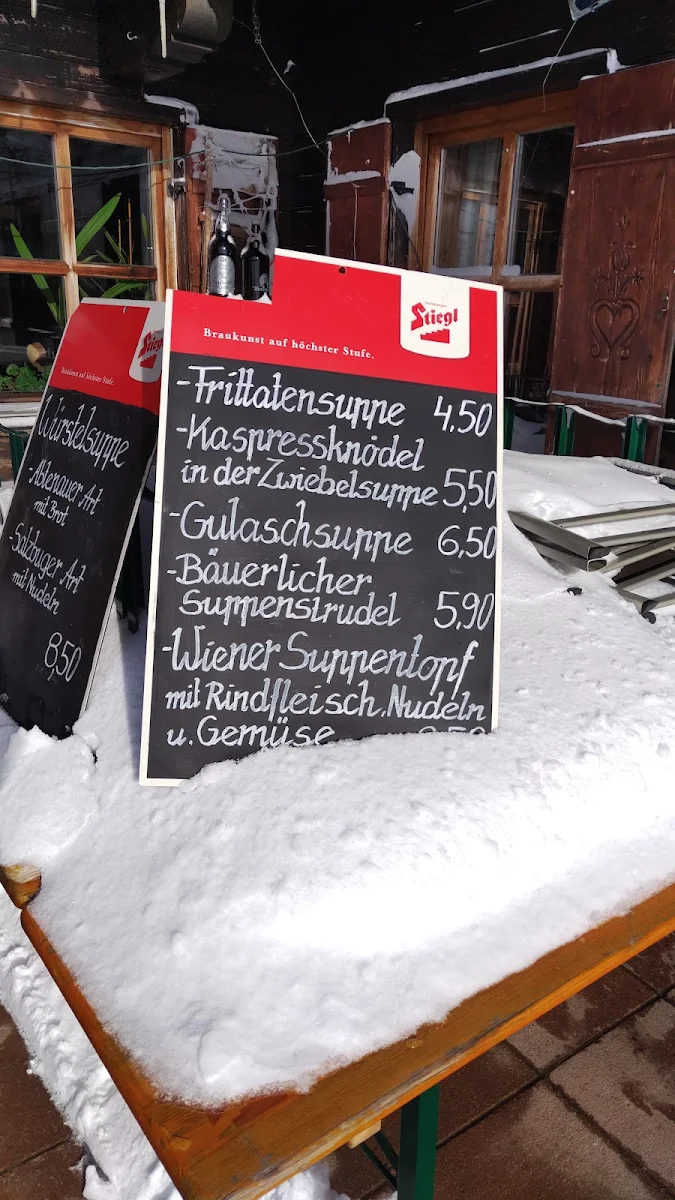 Braukunst auf höchster Stufe.
Salzburger
Stiegl
-Frittatensuppe 4,50
-Kaspressknödel
in der Zwiebelsuppe 5,50
-Gulaschsuppe 6,50
-Bäuerlicher
Suppenstrudel 5,90
-Wiener Suppentopf
mit Rindfleisch, Nudeln
u. Gemüse
Stiegl
Braukunst auf höchster Stufe.
Würstelsuppe
-Abtenauer Art
mit Brot
-Salzbuger Art
mit Nudeln